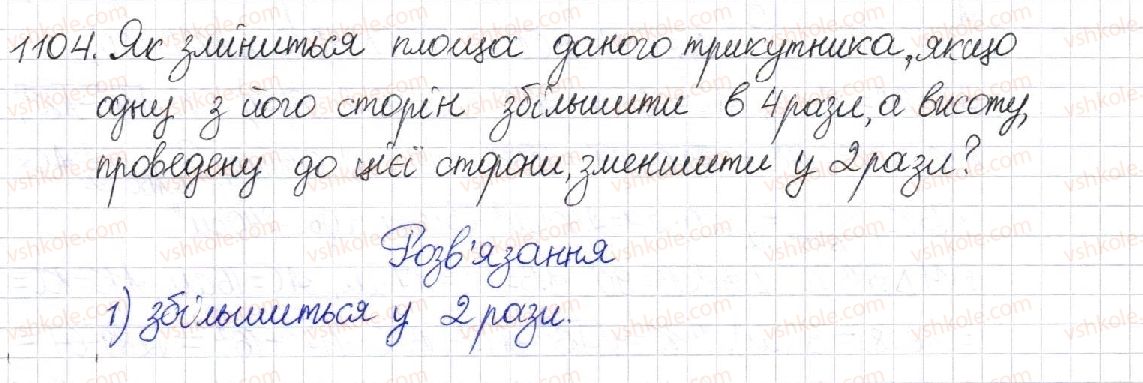 1104. Як зміниться площа даного трикутника, якщо
одну з його сторін збільшити в 4 рази, а висоту,
проведену до цієї сторони, зменшити у 2 рази?
Розв'язання
1) збільшиться у 2 рази.